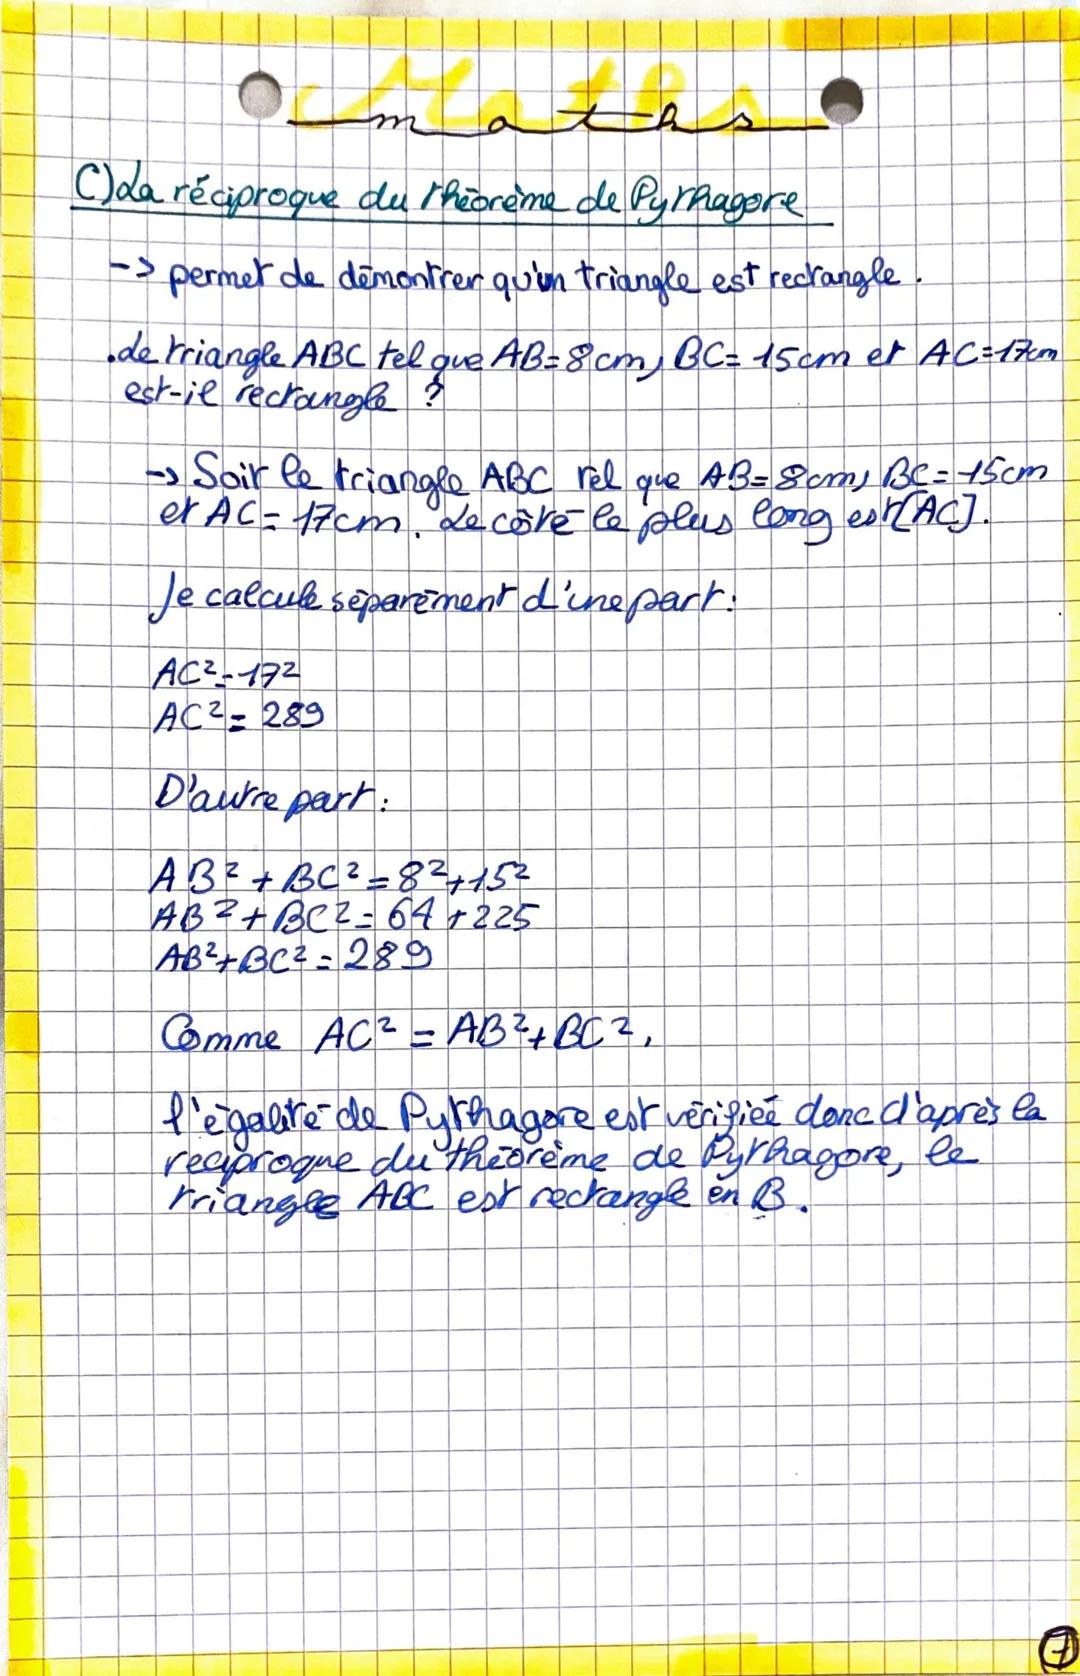 Maths
maths
C) La réciproque du théorème de Pythagore
-> permet de démontrer qu'un triangle est rectangle.
.Le triangle ABC tel que AB=8cm, BC=15cm et AC=17cm
est-il rectangle ?
-> Soit le triangle ABC tel que AB=8cm, BC=15cm
et AC=17cm. Le côté le plus long est [AC].
Je calcule séparément d'une part:
AC²=17²
AC²=289
D'autre part:
AB²+BC²=8²+15²
AB²+BC²=64+225
AB²+BC²=289
Comme AC²=AB²+BC²,
l'égalité de Pythagore est vérifiée donc d'après la
réciproque du théorème de Pythagore, le
triangle ABC est rectangle en B.
7